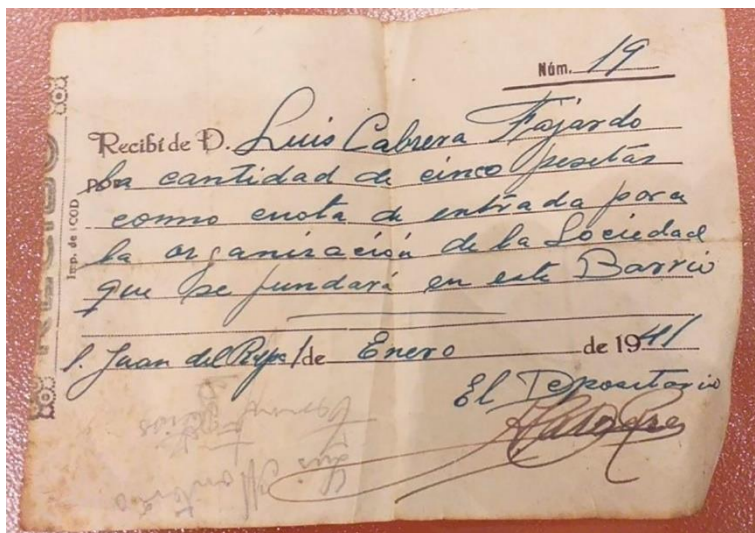 Núm. 19
Recibí de D. Luis Cabrera Fajardo
la cantidad de cinco pesetas
como cuota de entrada para
la organización de la Sociedad
que se fundará en este Barrio
S. Juan del Reparo 1 de Enero de 1941
El Depositario
RECIBO
Imp. de ICOD